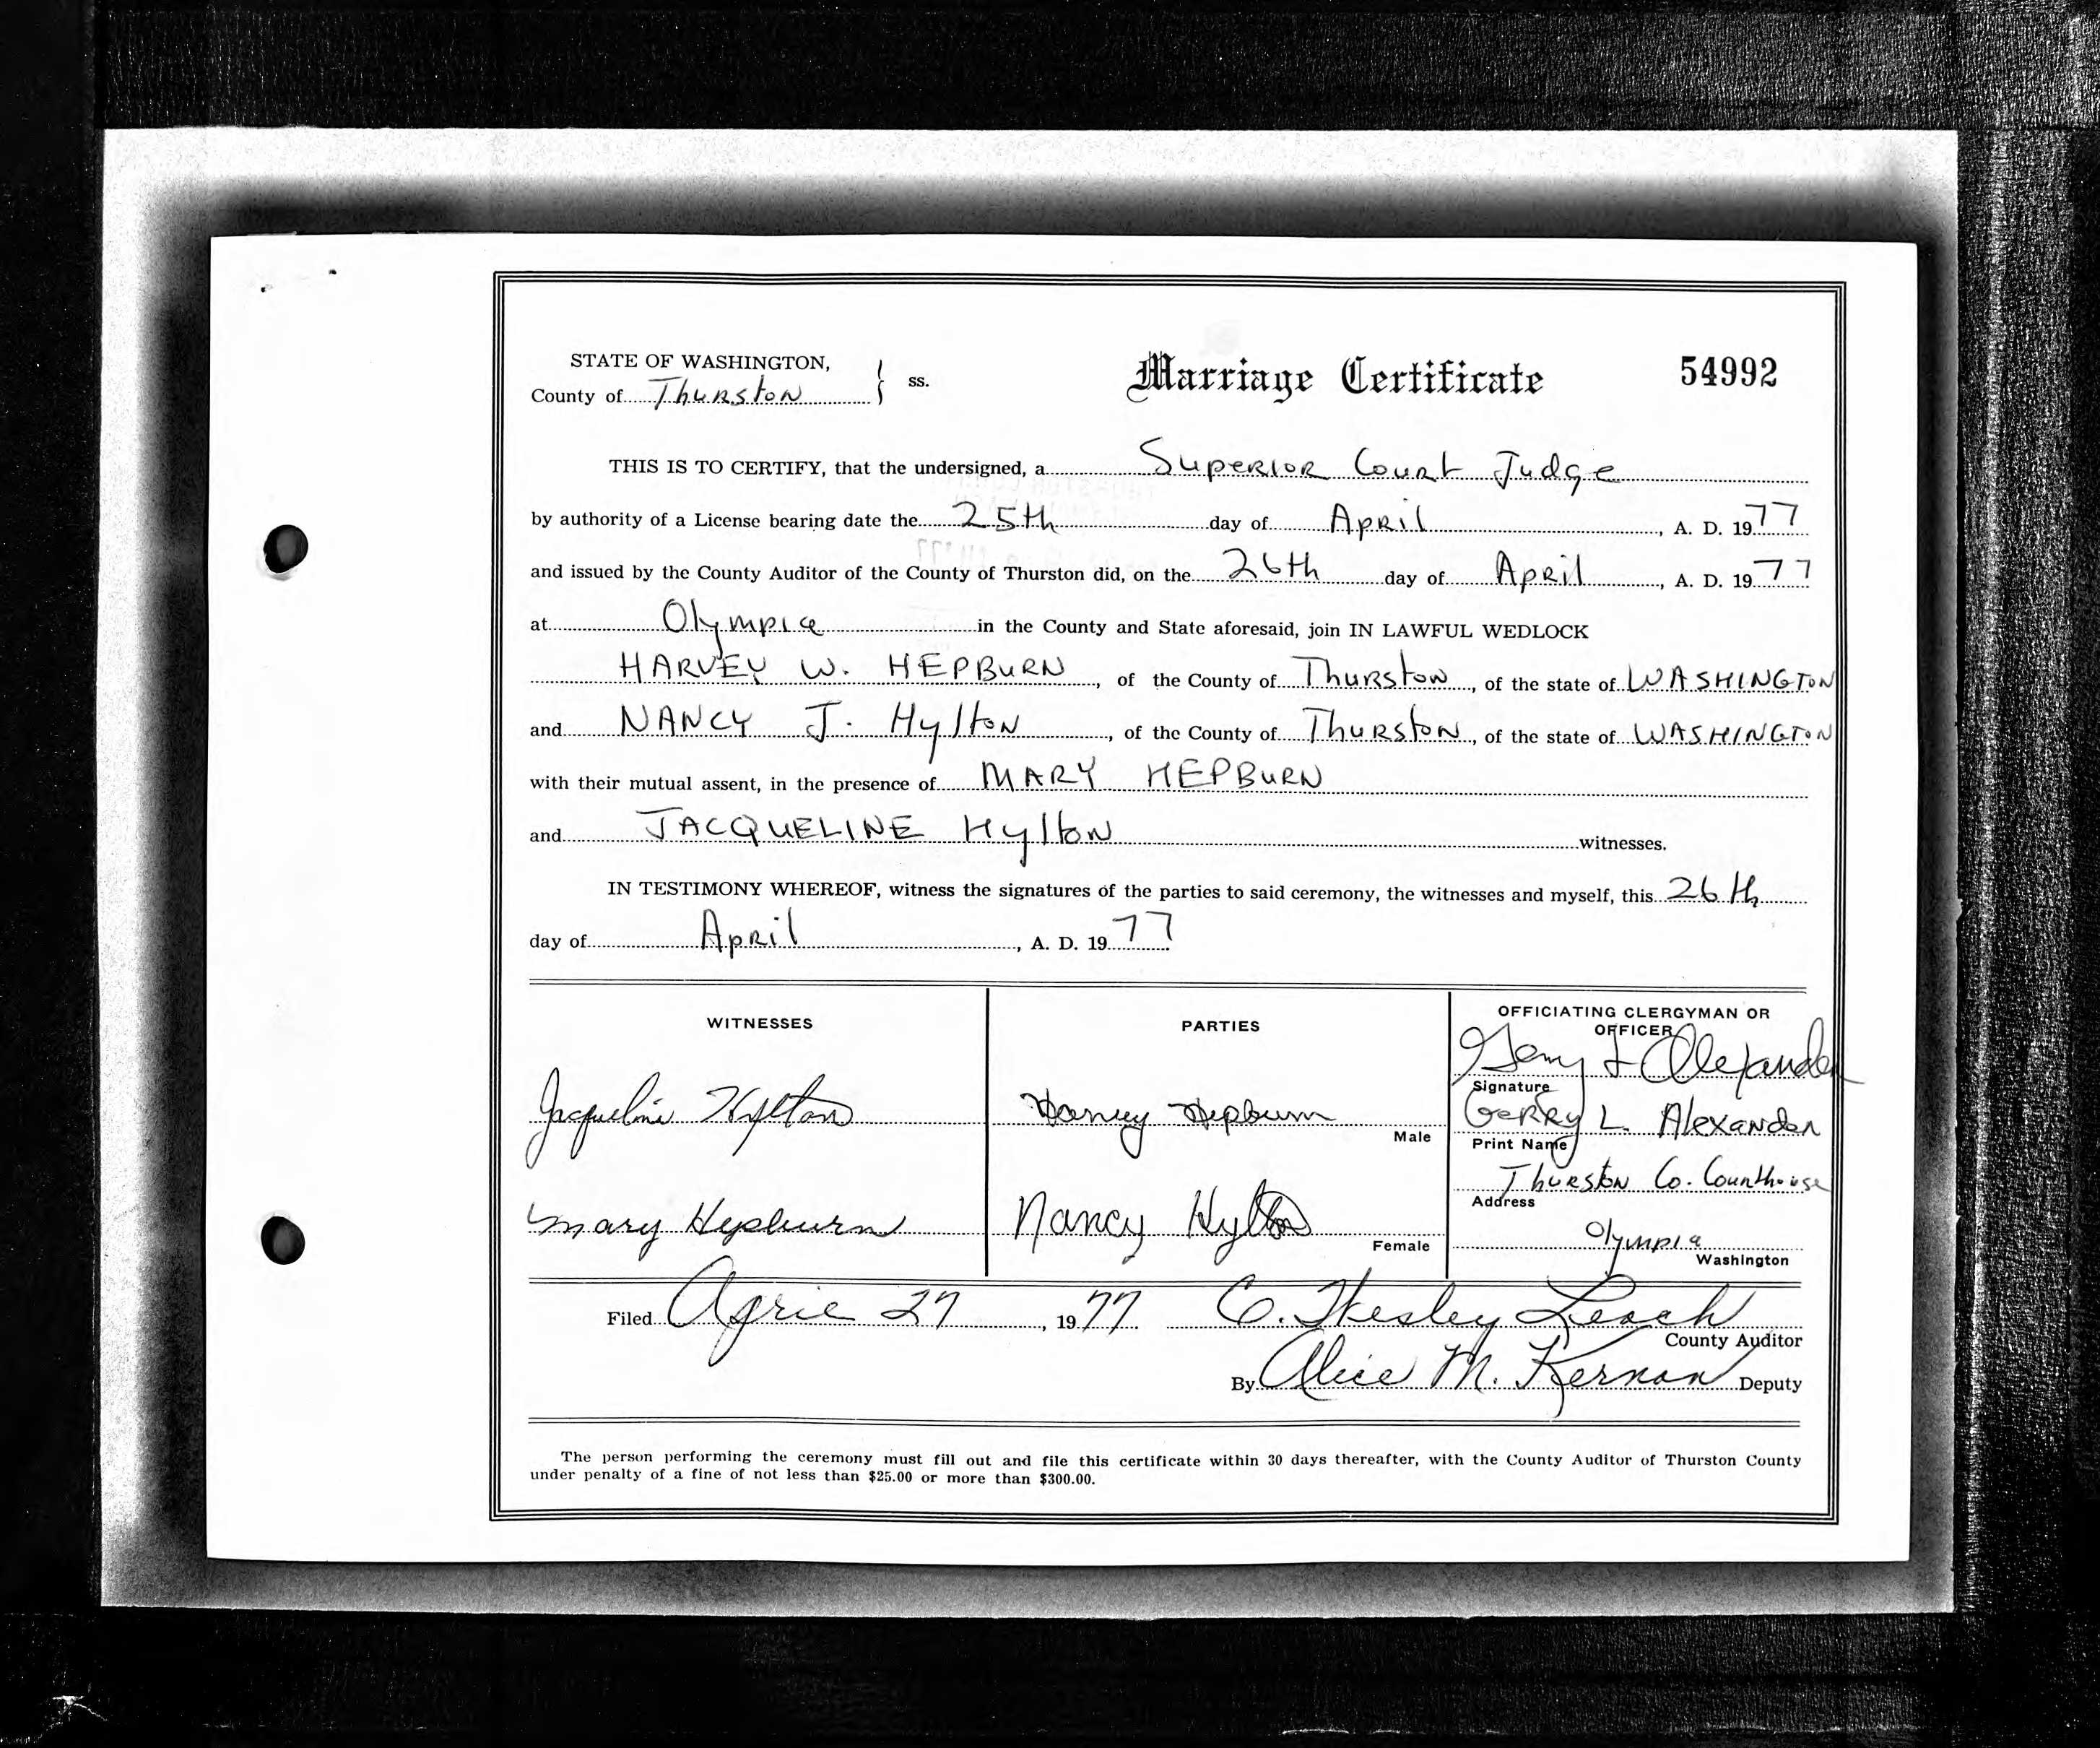 STATE OF WASHINGTON,
County of Thurston } ss.
Marriage Certificate 54992
THIS IS TO CERTIFY, that the undersigned, a Superior Court Judge
by authority of a License bearing date the 25th day of April, A. D. 1977
and issued by the County Auditor of the County of Thurston did, on the 26th day of April, A. D. 1977
at Olympia in the County and State aforesaid, join IN LAWFUL WEDLOCK
HARVEY W. HEPBURN, of the County of Thurston, of the state of WASHINGTON
and NANCY J. Hylton, of the County of Thurston, of the state of WASHINGTON
with their mutual assent, in the presence of MARY HEPBURN
and JACQUELINE Hylton witnesses.
IN TESTIMONY WHEREOF, witness the signatures of the parties to said ceremony, the witnesses and myself, this 26th
day of April, A. D. 1977
WITNESSES
Jacqueline Hylton
Mary Hepburn
PARTIES
Harvey Hepburn
Male
Nancy Hylton
Female
OFFICIATING CLERGYMAN OR
OFFICER
Gerry L Alexander
Signature
Gerry L. Alexander
Print Name
Thurston Co. Courthouse
Address
Olympia
Washington
Filed April 27, 1977 C. Wesley Leach
County Auditor
By Alice M. Kernan Deputy
The person performing the ceremony must fill out and file this certificate within 30 days thereafter, with the County Auditor of Thurston County
under penalty of a fine of not less than $25.00 or more than $300.00.